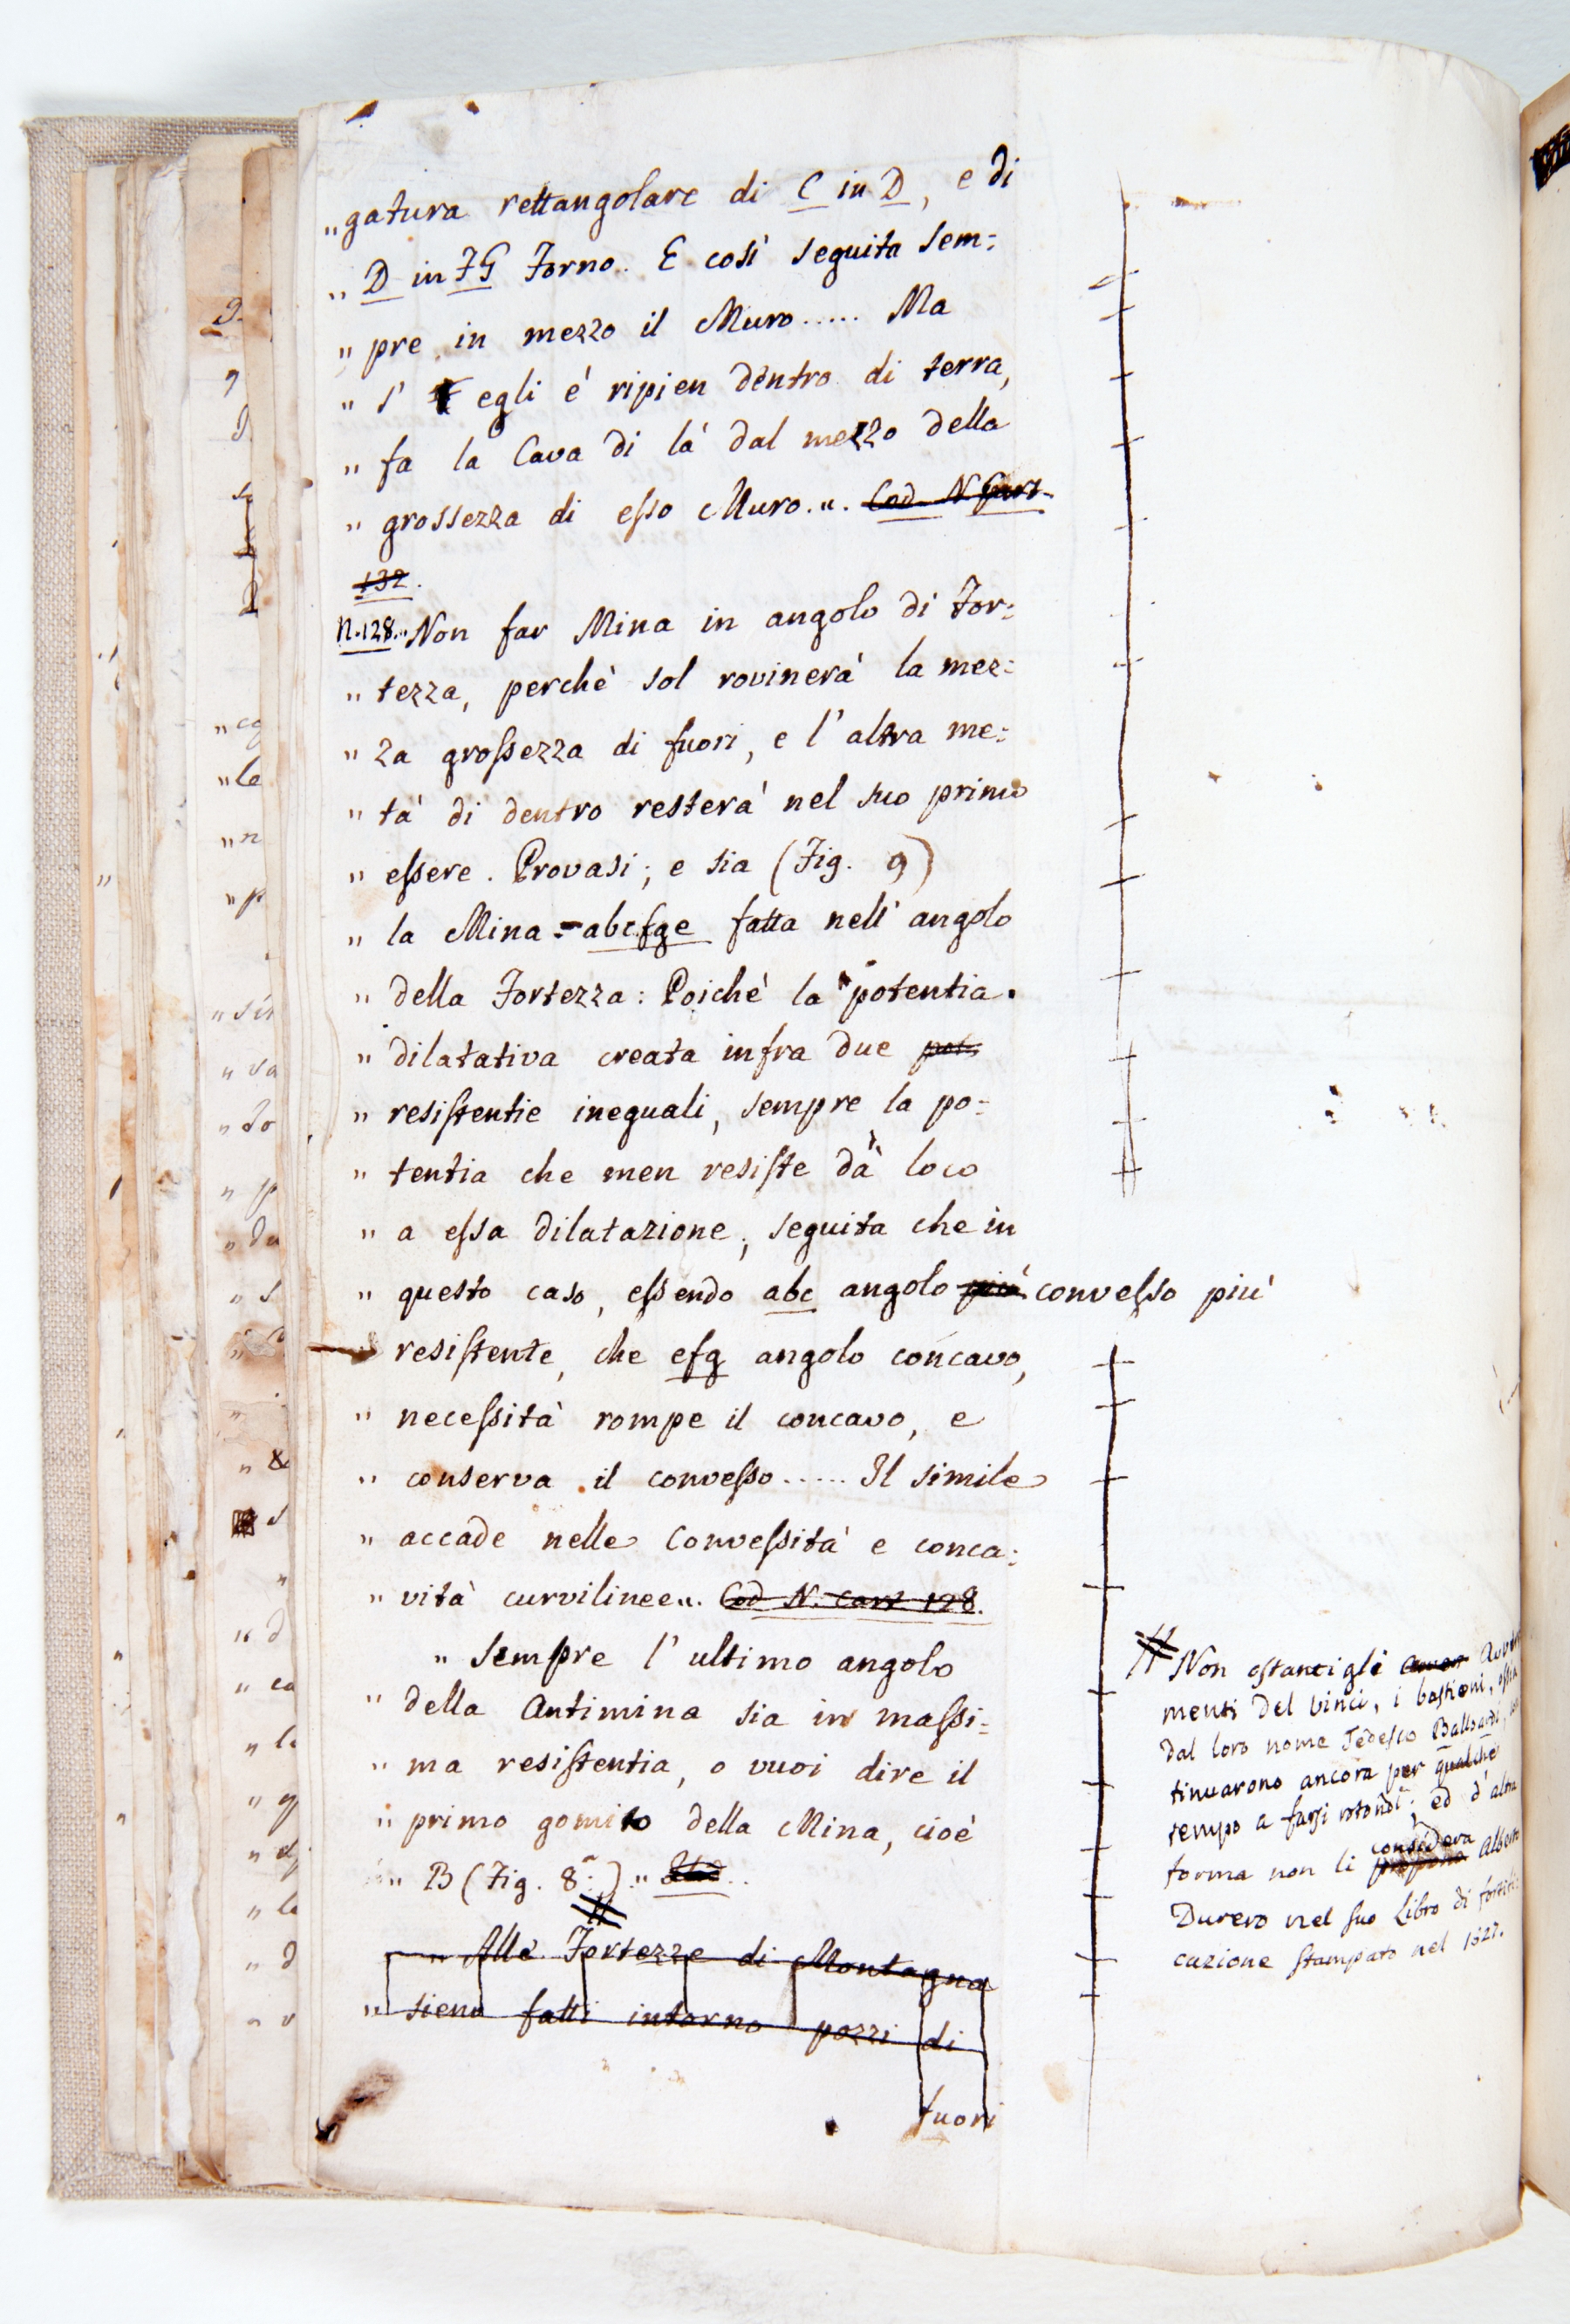 „ gatura rettangolare di C in D, e di
„ D in FG Forno. E così seguita sem:
„ pre in mezzo il Muro..... Ma
„ s' egli é ripien dentro di terra,
„ fa la Cava di là dal mezzo della
„ grossezza di esso Muro.„. Cod. N Cart.
132.
N.128. „ Non far Mina in angolo di For:
„ tezza, perchè sol rovinerà la mez:
„ za grossezza di fuori, e l'altra me:
„ tà di dentro resterà nel suo primo
„ essere. Provasi; e sia (Fig. 9)
„ la Mina = abcfge fatta nell' angolo
„ della Fortezza: Poichè la potentia
„ dilatativa creata infra due pot:
„ resistentie ineguali, sempre la po:
„ tentia che men resiste dà loco
„ a essa dilatazione; seguita che in
„ questo caso, essendo abc angolo più convesso più
„ resistente, che efg angolo concavo,
„ necessità rompe il concavo, e
„ conserva il convesso..... Il simile
„ accade nelle Convessità e conca:
„ vità curvilinee„. Cod. N. cart 128.
„ Sempre l'ultimo angolo
„ della Antimina sia in massi:
„ ma resistentia, o vuoi dire il
„ primo gomito della Mina, cioè
„ B (Fig. 8.ª).„
„ Alle Fortezze di Montagna
„ sieno fatti intorno pozzi di
fuori
Non ostanti gli
menti del Vinci, i bastioni,
dal loro nome Tedesco Balloardi,
tinuarono ancora per qualche
tempo a farsi rotondi; ed d'altra
considera
forma non li propone Alberto
Durero nel suo Libro di fortifi:
cazione stampato nel 1527.